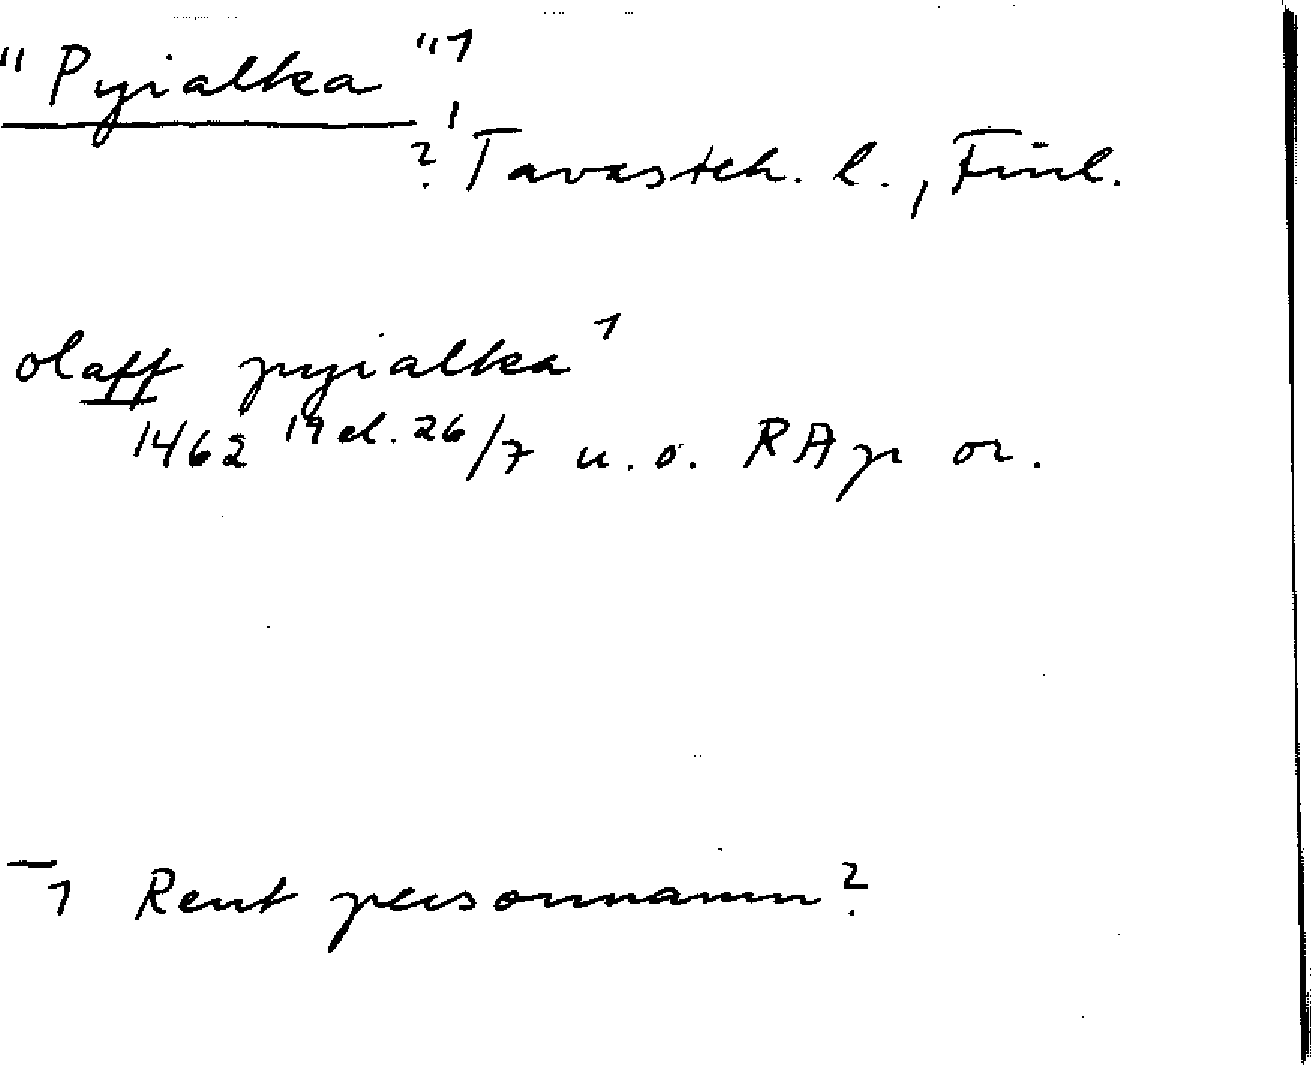 "Pyialka"1
? Tavasteh. l., Finl.
olaff pyialka1
1462 19 el. 26/7 u.o. RAp or.
1 Rent personnamn?